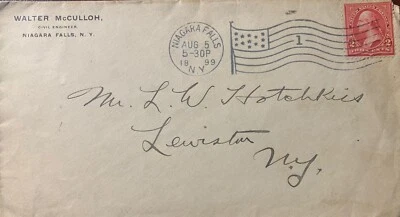 WALTER McCULLOH,
CIVIL ENGINEER,
NIAGARA FALLS, N. Y.
NIAGARA FALLS
AUG 5
5-30P
1899
N.Y.
1
2 2
Mr. L. W. Hotchkiss
Lewiston
N.Y.